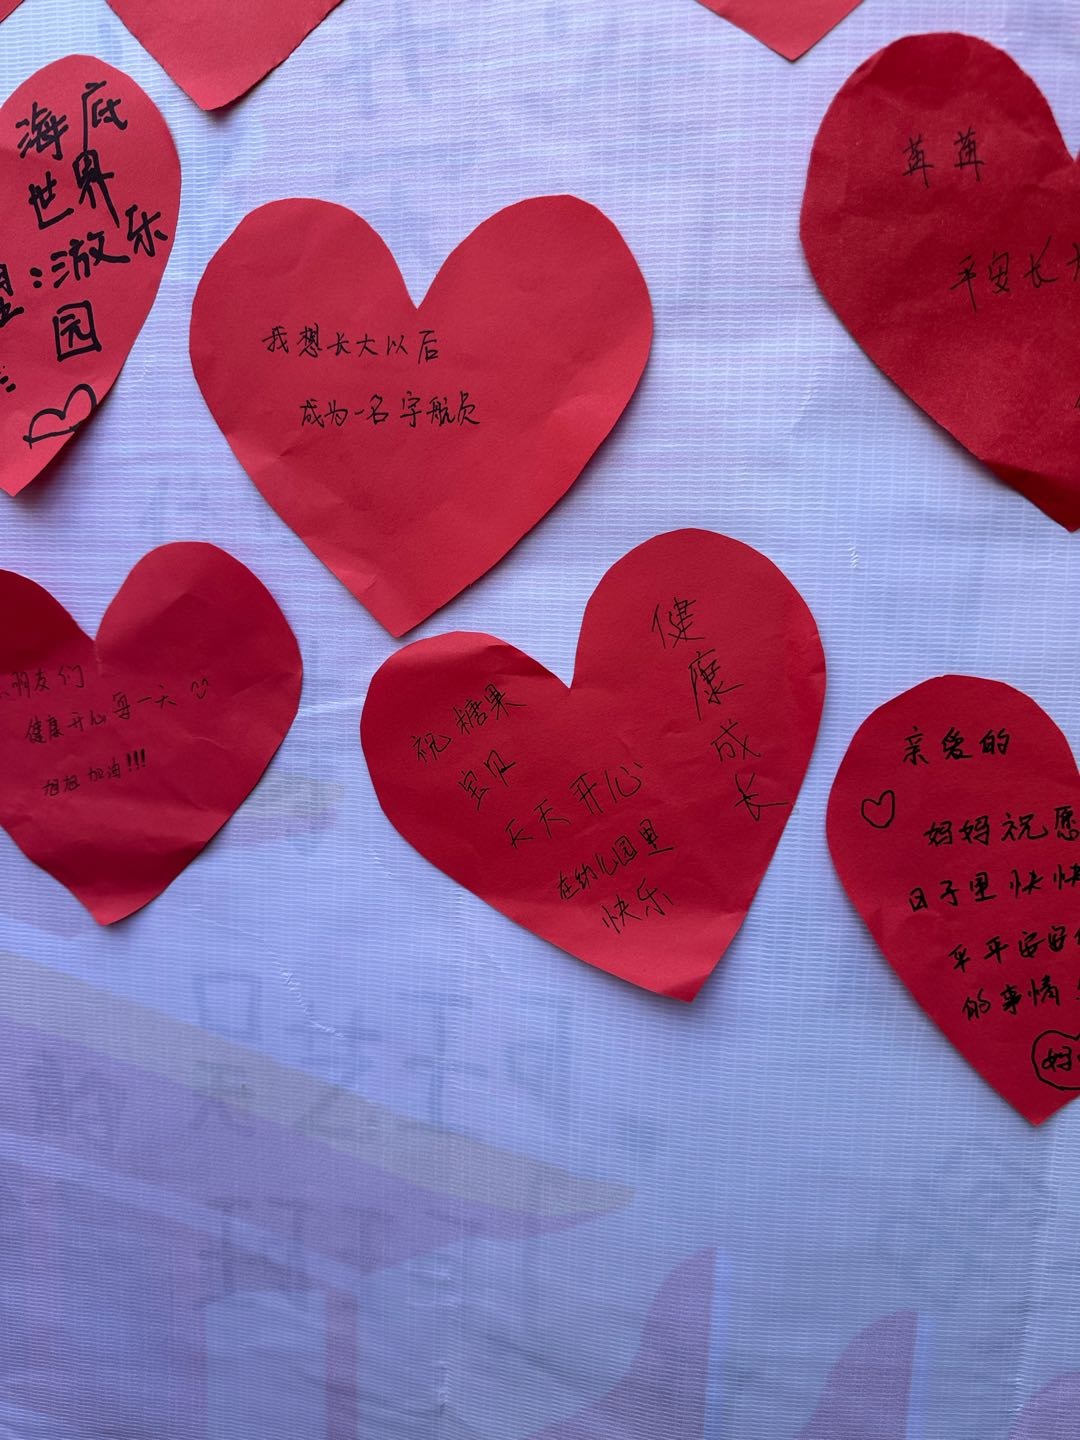 海底
世界
:游乐
园
我想长大以后
成为一名宇航员
苒苒
平安长大
朋友们
健康开心每一天
旭旭加油!!!
祝糖果
宝贝
天天开心
在幼儿园里
快乐
健康成长
亲爱的
妈妈祝愿
日子里快快
平平安安
的事情
妈